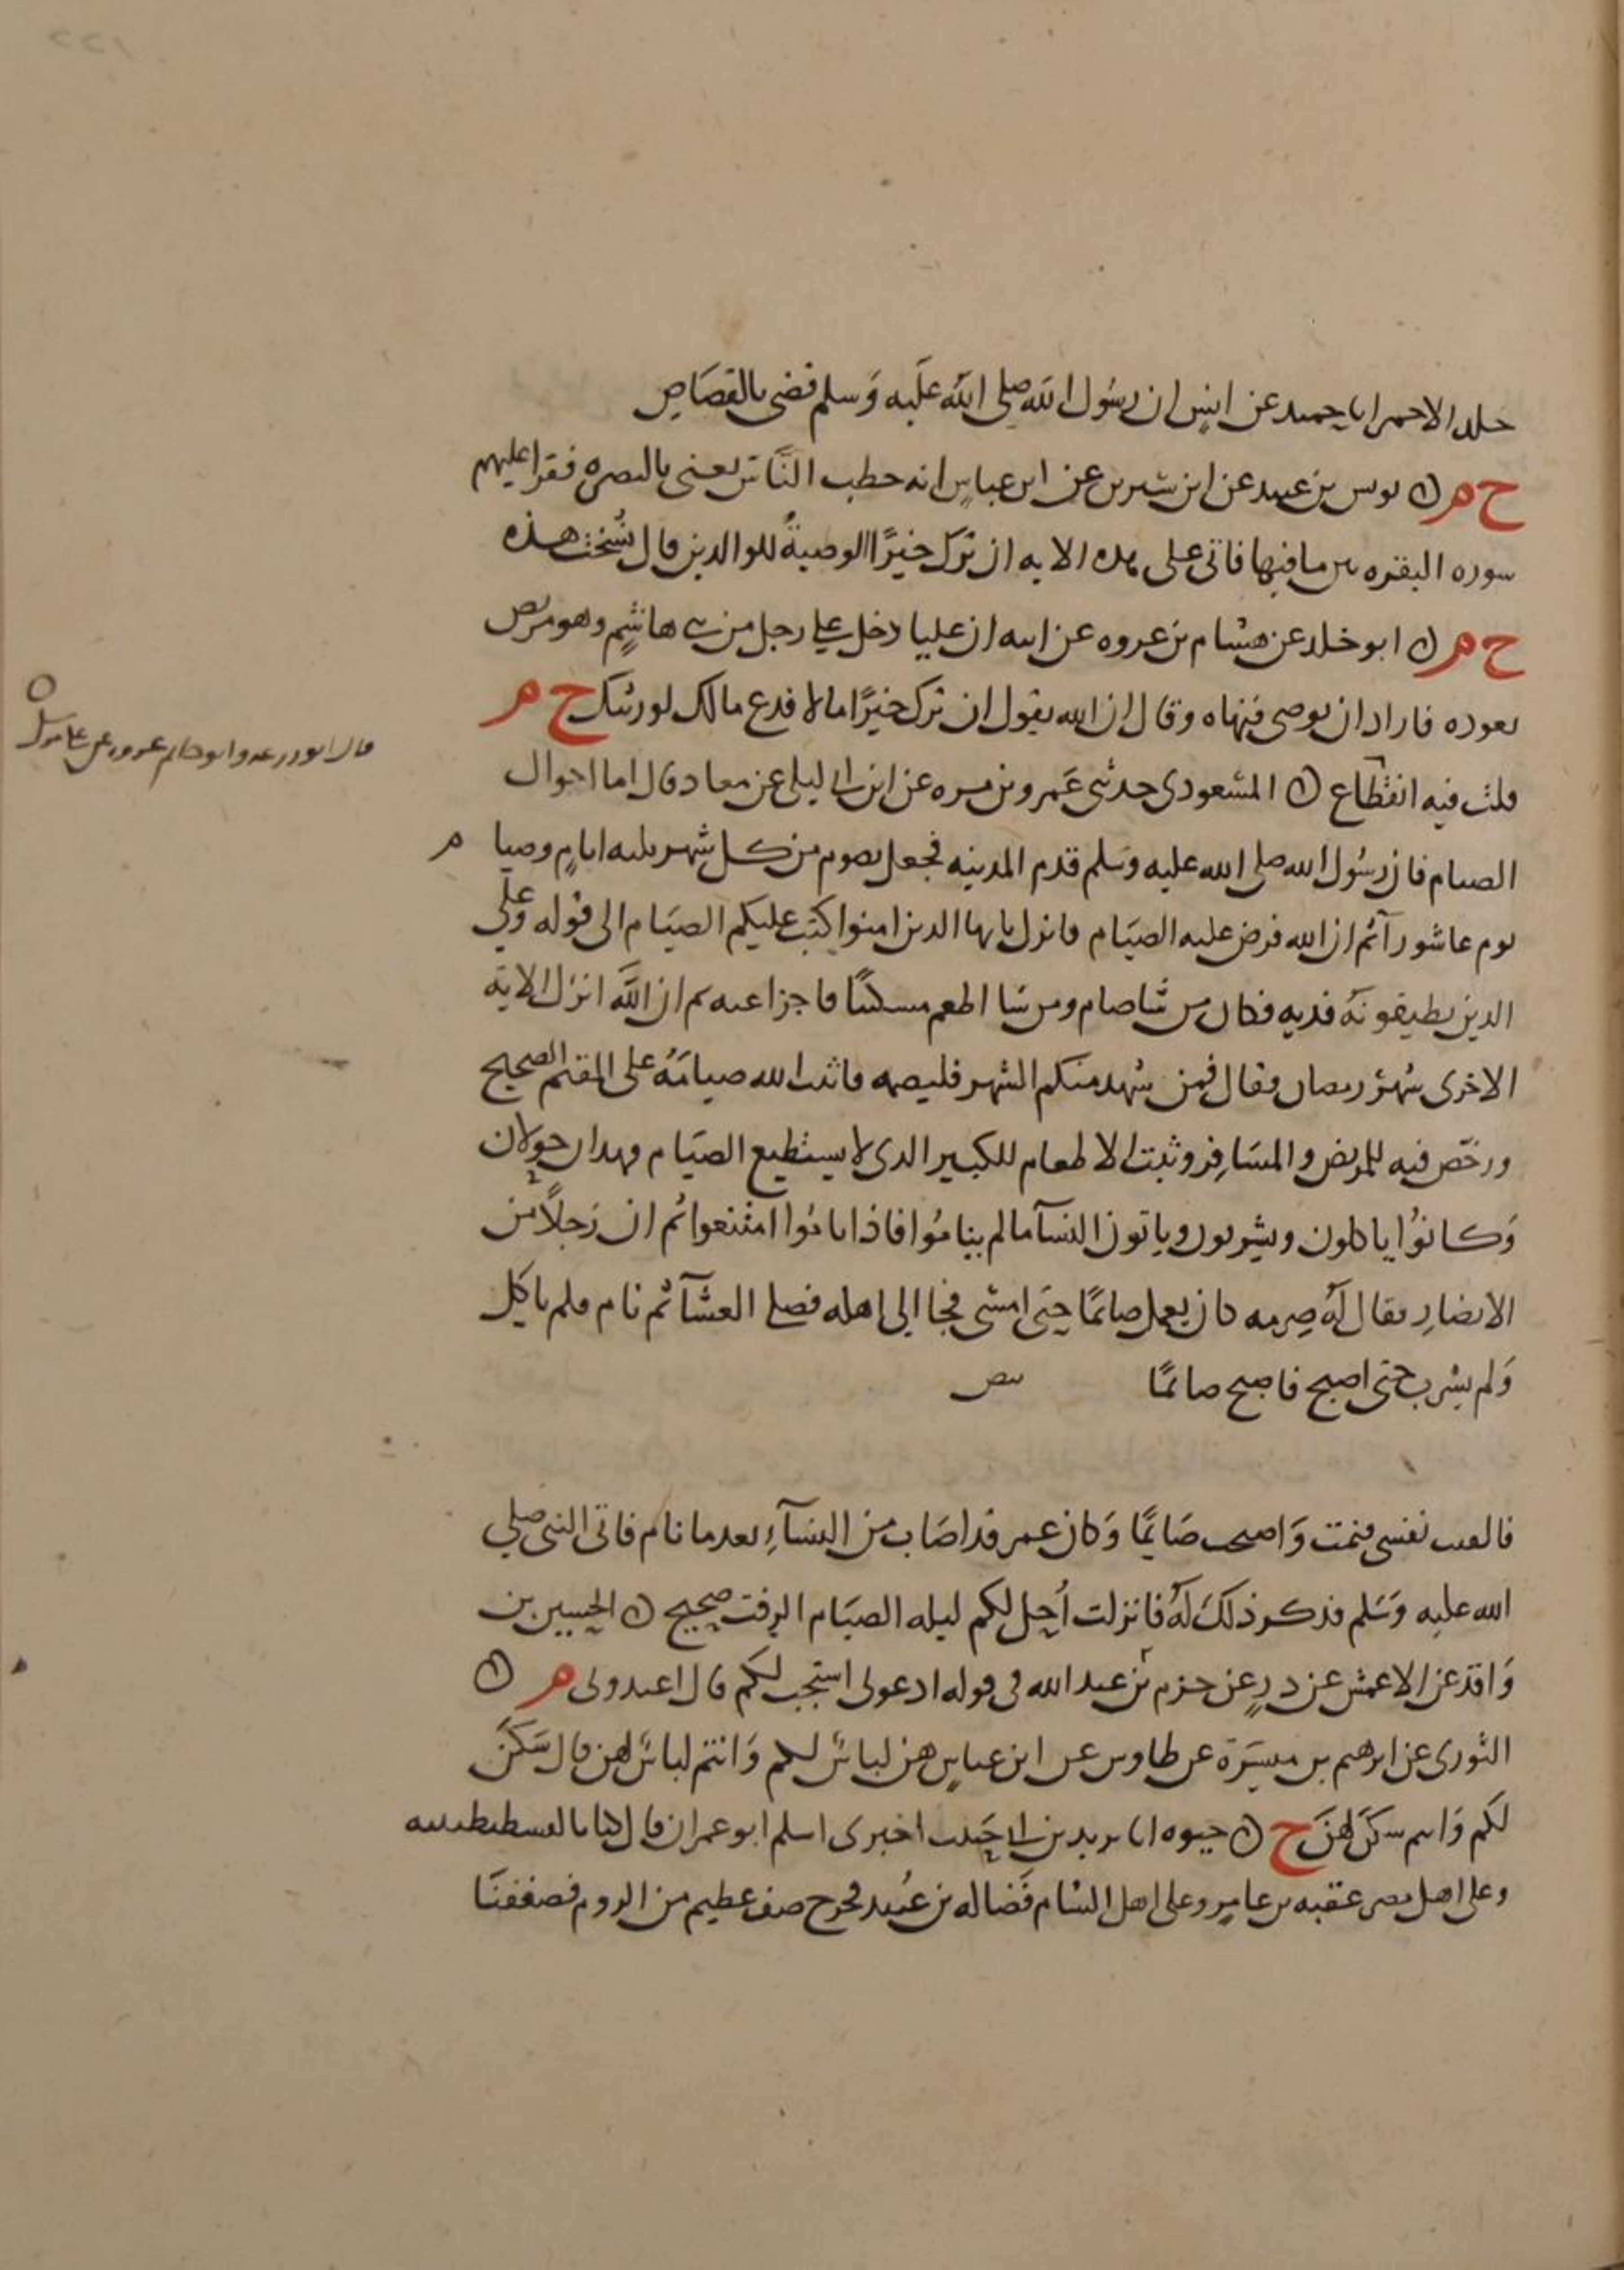 خلد الاحمر انا حميد عن انسٍ ان رسُول الله صلى الله عَليه وَسلم قضى بالقصَاصِ
خ م ن يونس بن عبيد عن ابن سيرين عن ابن عباسٍ انه خطب النَّاسَ يعنى بالبصره فقرا عليهم
سوره البقره يبين ما فيها فاتى على هذه الايه ان ترك خيرًا الوصيةُ للوالدين قال نُسخت هذه
خ م ن ابو خلد عن هشام بن عروه عن ابيه ان عليا دخل على رجل من بنى هاشمٍ وهو مريض
يعوده فاراد ان يوصى فنهاه وقال ان الله يقول ان ترك خيرًا مالا فدع مالك لورثتك خ م
قلت فيه انقطاع ن المسعودى حدثنى عَمرو بن مره عن ابن ابى ليلى عن معاد قال اما احوال
الصيام فان رسُول الله صلى الله عليه وسَلم قدم المدينه فجعل يصوم من كل شهر ثلثه ايامٍ وصيا م
يوم عاشورآ ثم ان الله فرض عليه الصيَام فانزل يايها الدين امنوا كتب عليكم الصيَام الى قوله وعلى
الدين يطيقونَه فديه فكان من شا صام ومن شا اطعم مسكينًا فاجزا عنه ثم ان اللَّه انزل الايَة
الاخرى شهرُ رمضان وقال فمن شهد منكم الشهر فليصمه فاثبت الله صيامَهُ على المقيم الصحيح
ورخّص فيه للمريض والمسَافِر وثبت الاطعام للكبير الدى لا يستطيع الصيَام فهدان حولان
وَكانوُا ياكلون ويشربون وياتون النسآ مالم ينامُوا فاذا نامُوا امتنعوا ثم ان رَجلاً من
الانصَارِ يقال لَهُ صِرمه كان يعمل صائمًا حتى امسَى فجا الى اهله فصلى العشآ ثم نام فلم ياكل
وَلم يشرب حتى اصبح فاصبح صائمًا
فالقيت نفسى فنمت وَاصبحت صَايمًا وَكان عمر قد اصَابَ من النسَآءِ بعد ما نام فاتى النبى صلى
الله عليه وَسَلم فدكر ذلكَ لَهُ فانزلت اُحِل لكم ليله الصيَام الرفث صحيح ن الحسين بن
وَاقد عن الاعمش عن درٍ عن جزم بن عبد الله فى قوله ادعونى استجب لكم قال اعبدونى م ن
الثورى عن ابرهيم بن ميسَرَة عن طاوس عن ابن عباسٍ هن لباسٌ لكم وَانتم لباسٌ لهن قال سَكَنٌ
لَكم وَانتم سَكَنٌ لهنَ خ ن حيوه انا يزيد بن ابى حَبيب اخبرنى اسلم ابو عمران قال كنا بالقسطنطينيه
وعلى اهل مصر عقبه بن عامرٍ وعلى اهل الشام فَضاله بن عُبيد فخرج صف عظيم من الروم فصففنَا
قال ابو زرعه وابو حاتم عروه عن على مرسل